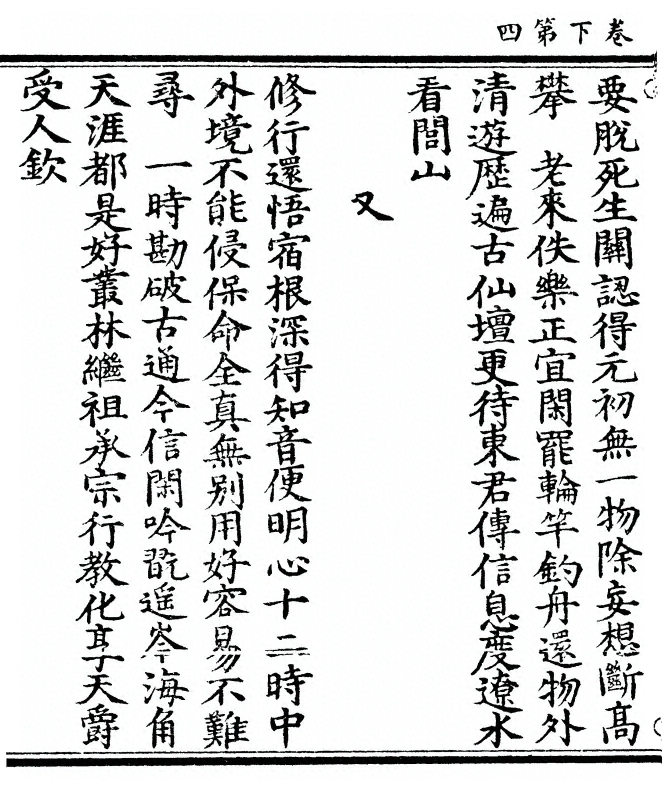 卷下第四
要脫死生關認得元初無一物除妄想斷高
攀　老來佚樂正宜閑罷輪竿釣舟還物外
清遊歷遍古仙壇更待東君傳信息度遼水
看閭山
又
修行還悟宿根深得知音便明心十二時中
外境不能侵保命全真無別用好容易不難
尋　一時勘破古通今信閑吟翫遥岑海角
天涯都是好叢林繼祖承宗行教化享天爵
受人欽